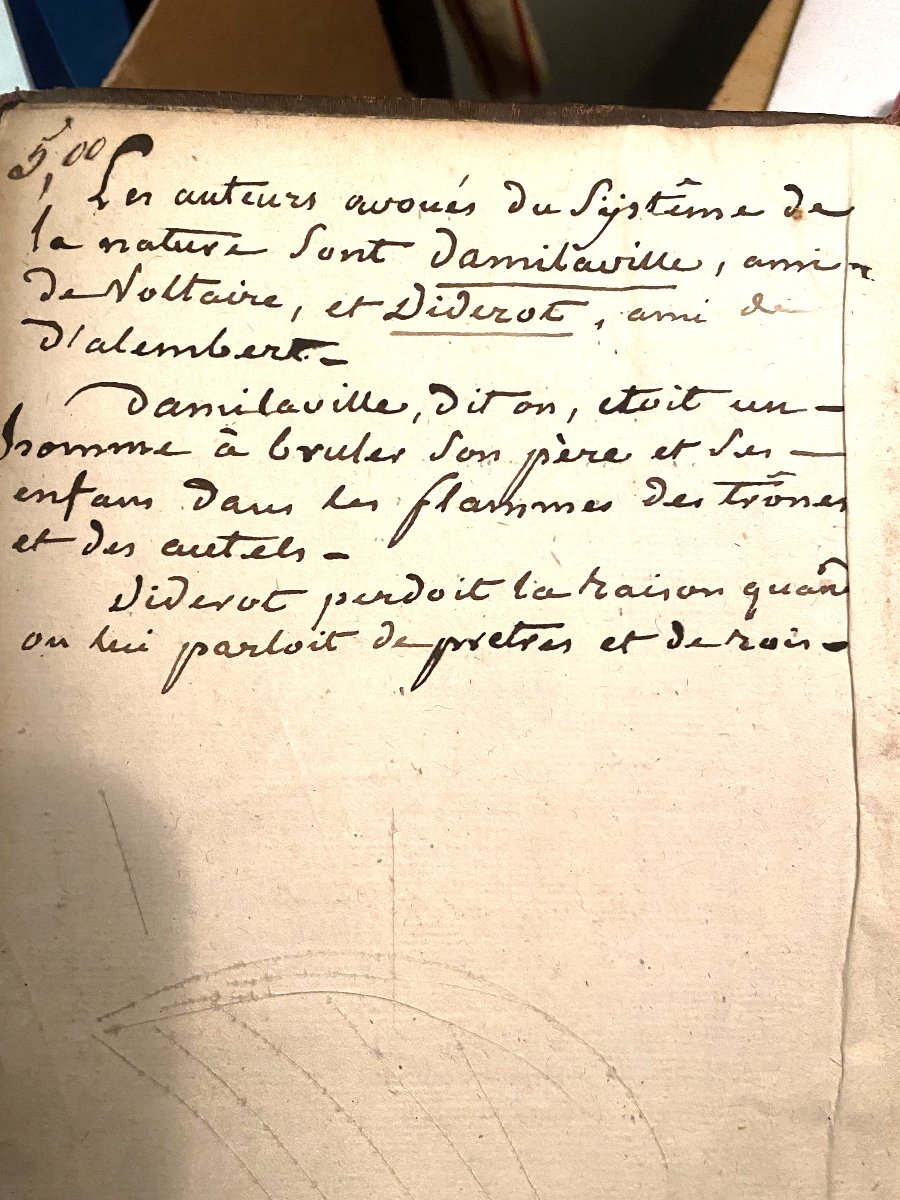 5,00
Les auteurs avoués du Systême de
la nature sont Damilaville, ami
de Voltaire, et Diderot, ami de
d'alembert -
Damilaville, dit on, etoit un -
homme à bruler son père et ses -
enfans dans les flammes des trônes
et des autels -
Diderot perdoit la raison quand
on lui parloit de pretres et de rois -